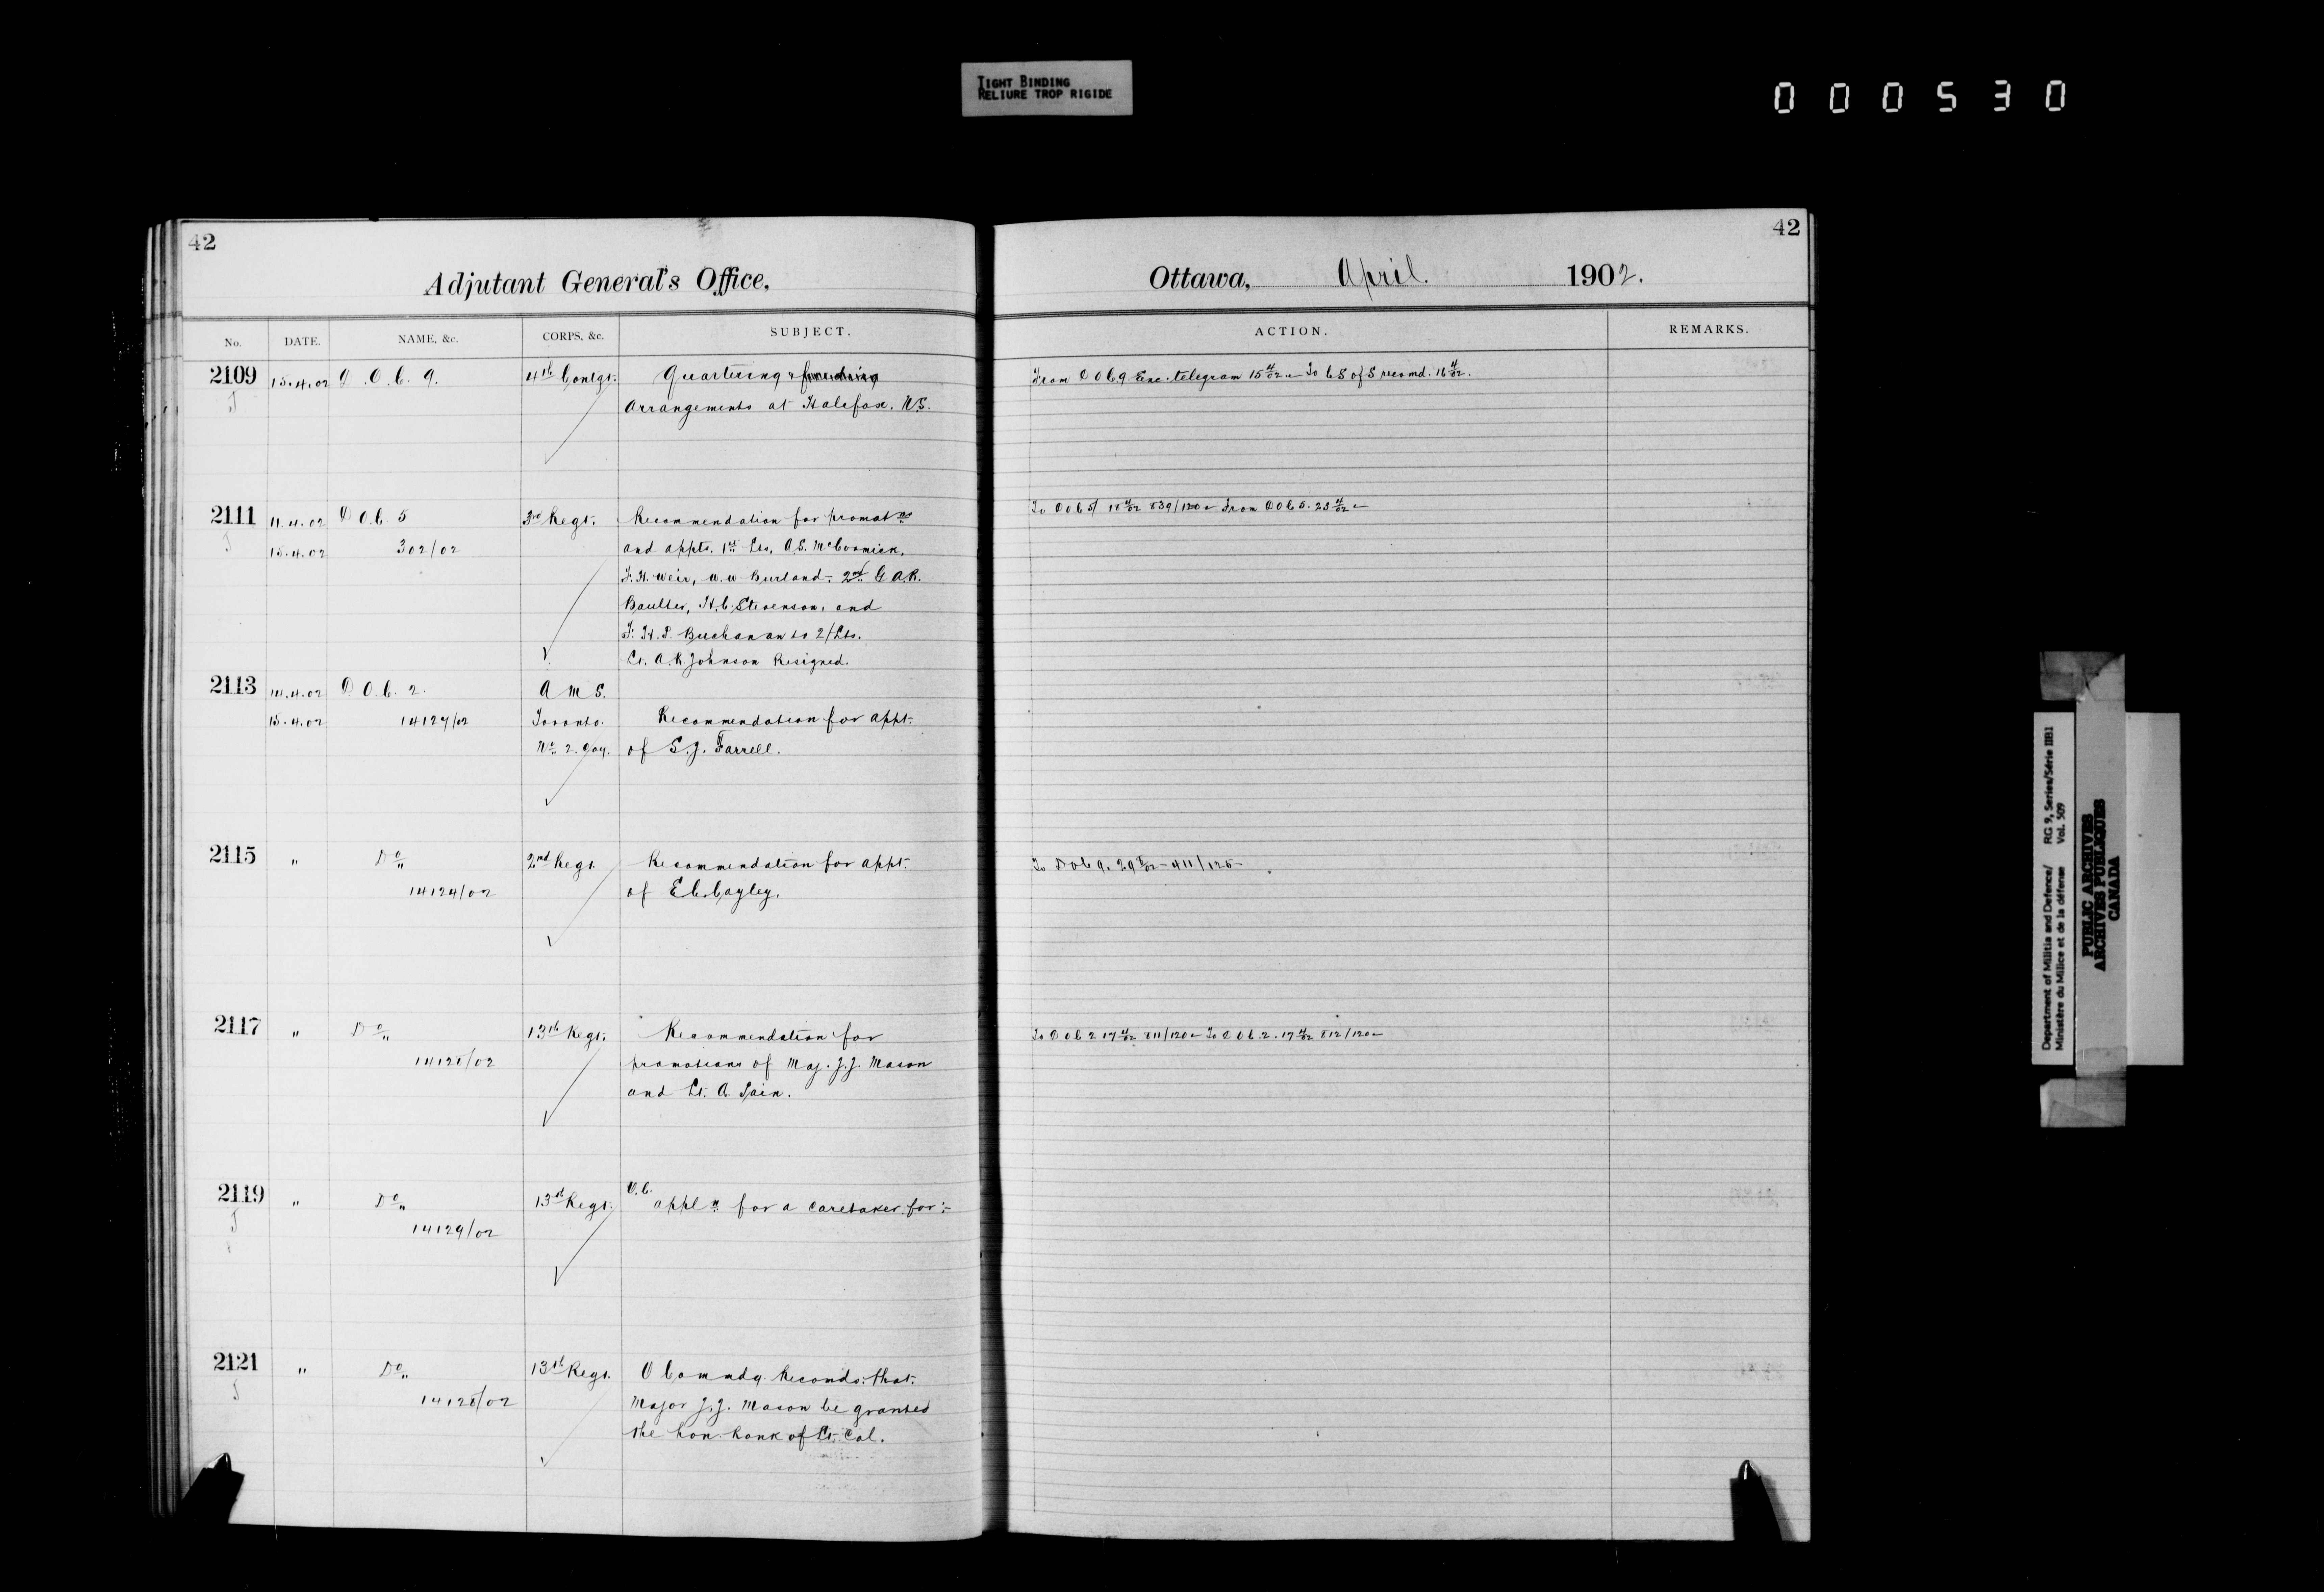 TIGHT BINDING
RELIURE TROP RIGIDE
000530
42
Adjutant General's Office,
No. DATE. NAME, &c. CORPS, &c. SUBJECT.
2109 15.4.02 D.O.C. 9. 4th Contgt. Quartering &
Arrangements at Halifax. N.S.
2111 11.4.02 D.O.C. 5 3rd Regt. Recommendation for promotns
15.4.02 302/02 and appts. 1st Lts, A.S. McCormick,
F.H. Weir, W.W. Burland, 2nd G.A.R.
H.C. Stevenson, and
F.H.P. Buchanan to 2/Lts.
Lt. A.R. Johnson Resigned.
2113 14.4.02 D.O.C. 2. A M S.
15.4.02 14127/02 Toronto. Recommendation for appt.
No 2. Coy. of S.J. Farrell.
2115 " Do 2nd Regt. Recommendation for appt.
14124/02 of E.C. Cayley.
2117 " Do 13th Regt. Recommendation for
promotions of Maj. J.J. Mason
and Lt. A. Pain.
2119 " Do 13th Regt. O.C. appln for a caretaker for:-
14129/02
2121 " Do 13th Regt. O Commdg. Recomds. that.
Major J.J. Mason be granted
the hon. Rank of Lt. Col.
42
Ottawa, April. 1902.
ACTION. REMARKS.
From D O C 9 Enc. telegram 15 4/02 - To C S of S recomd. 16 4/02.
To D O C 5/ 18 4/02 839/120 - From D O C 5. 23 4/02 -
To D O C 9. 29 - 411/125 -
To D O C 2 17 4/02 811/120 - To D O C. 2. 17 4/02 812/120 -
Department of Militia and Defence/ RG 9, Series/Série IIB1
Ministère du Milice et de la défense Vol. 509
PUBLIC ARCHIVES
ARCHIVES PUBLIQUES
CANADA